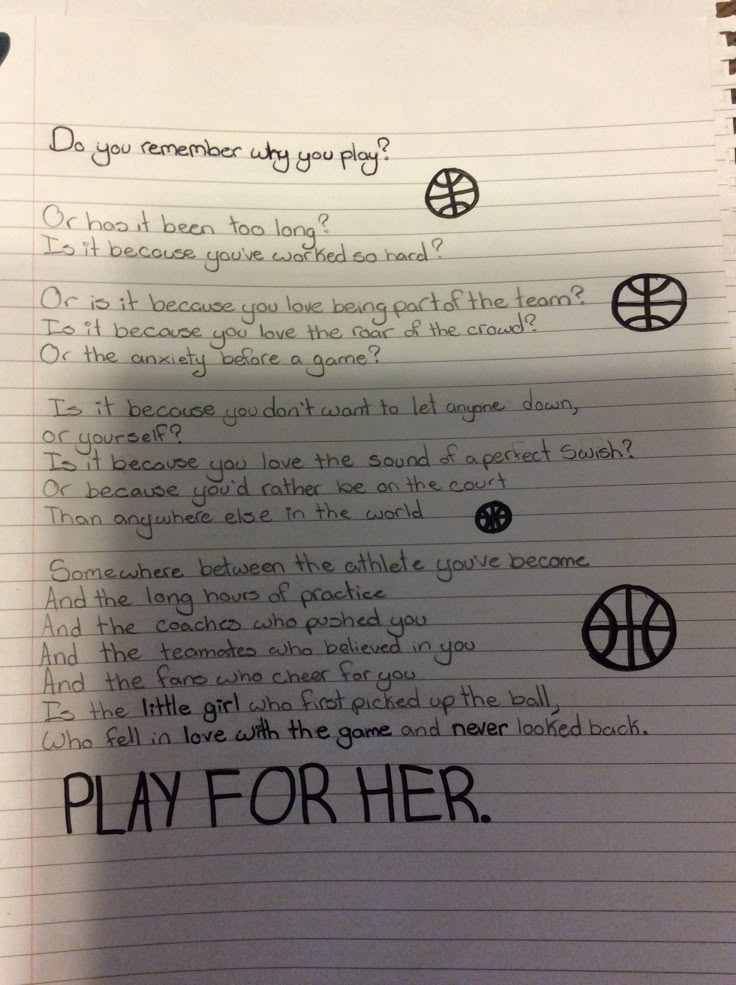 Do you remember why you play?
Or has it been too long?
Is it because you've worked so hard?
Or is it because you love being part of the team?
Is it because you love the roar of the crowd?
Or the anxiety before a game?
Is it because you don't want to let anyone down,
or yourself?
Is it because you love the sound of a perfect swish?
Or because you'd rather be on the court
Than anywhere else in the world
Somewhere between the athlete you've become
And the long hours of practice
And the coaches who pushed you
And the teamates who believed in you
And the fans who cheer for you
Is the little girl who first picked up the ball,
Who fell in love with the game and never looked back.
PLAY FOR HER.